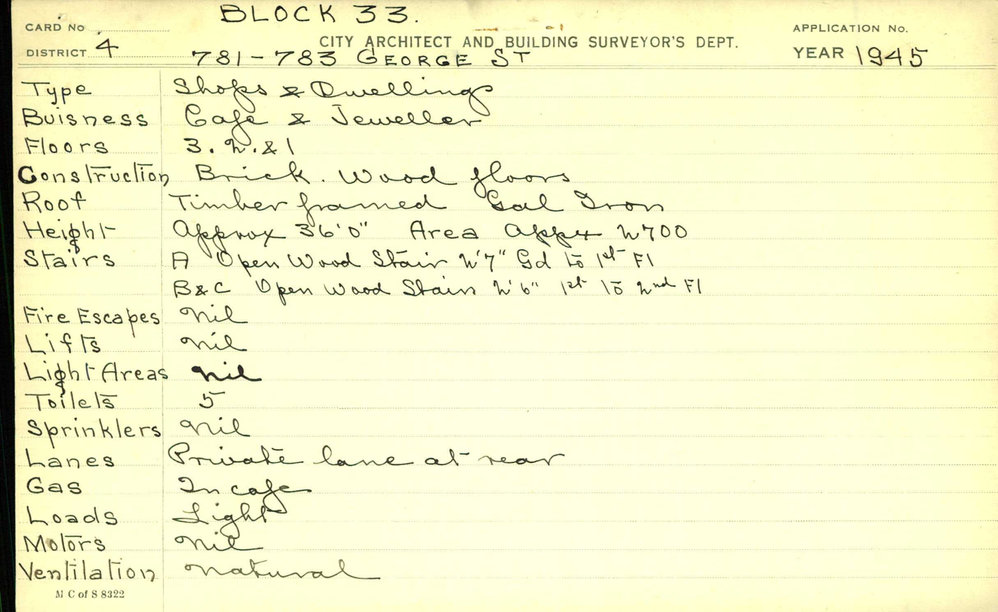 BLOCK 33.
CARD No
APPLICATION No.
CITY ARCHITECT AND BUILDING SURVEYOR'S DEPT.
DISTRICT 4
781-783 GEORGE ST
YEAR 1945
Type Shops & Dwellings
Buisness Cafe & Jeweller
Floors 3. 2. & 1
Construction Brick. Wood floors
Roof Timber framed Gal Iron
Height Approx 36'0" Area Appx 2700
Stairs A Open Wood Stair 2'7" Gd to 1st Fl
B&C Open Wood Stairs 2'6" 1st to 2nd Fl
Fire Escapes Nil
Lifts Nil
Light Areas Nil
Toilets 5
Sprinklers Nil
Lanes Private lane at rear
Gas In cafe
Loads Light
Motors Nil
Ventilation Natural
M C of S 8322